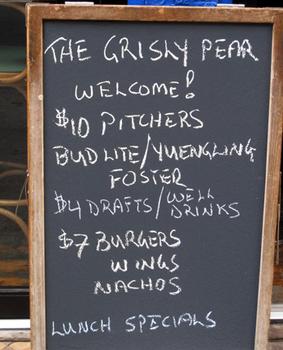 THE GRISLY PEAR
WELCOME!
$10 PITCHERS
BUD LITE/YUENGLING
FOSTER
$4 DRAFTS/WELL DRINKS
$7 BURGERS
WINGS
NACHOS
LUNCH SPECIALS